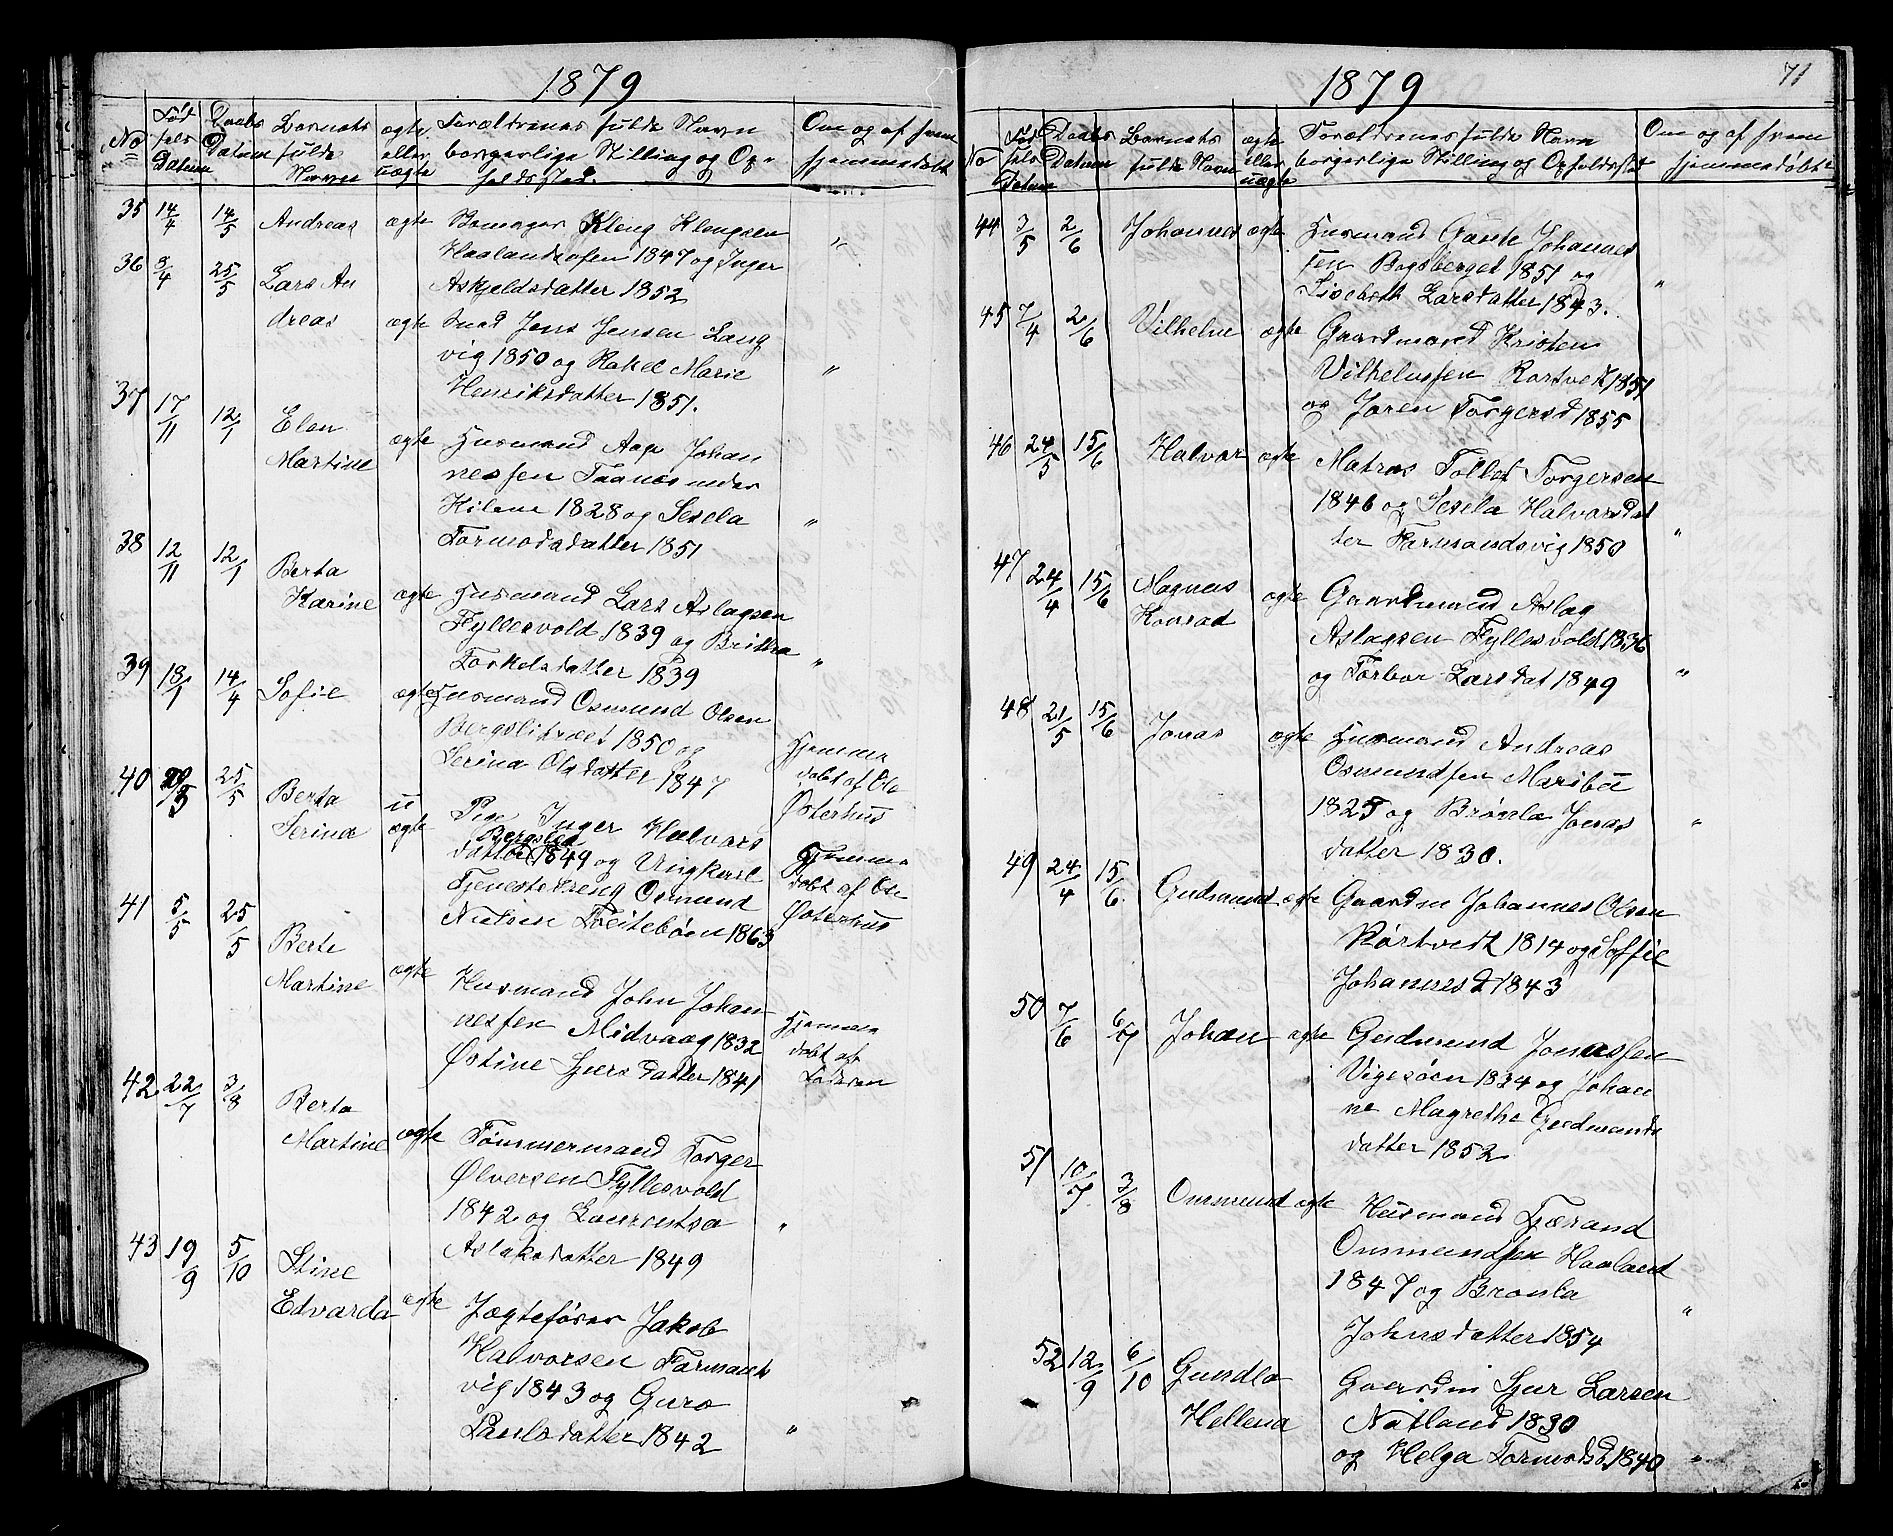 1879
No Fød- Daabs Barnets ægte Forældrenes fulde Navn Om og af hvem
sels Datum fulde eller borgerlige Stilling og Op- hjemmedøbt
Datum Navn uægte holdssted.
35 14/4 14/5 Andreas ægte Kleng Klengsen
1847 og Inger
Askjeldsdatter 1852 "
36 3/4 25/5 Lars An
dreas ægte Smed Jens Jensen Lang
vig 1850 og Rakel Marie
Henriksdatter 1851. "
37 17/11 12/1 Elen
Martine ægte Husmand Aage Johan
nessen under
Kilene 1828 og Sesela
Tormodsdatter 1851 "
38 12/11 12/1 Berta
Karine ægte Husmand Lars Aslagsen
Fyllesvold 1839 og Britha
Torkelsdatter 1839 "
39 18/1 14/4 Sofie ægte Husmand Osmund Olsen
1850 og
Serina Olsdatter 1847
Hjemme
døbt af Ole
Østerhus
40 25/5 Berta
Serine u
ægte Pige Inger Halvors
Bergslid
datter 1849 og Ungkarl
Tjenestedreng Osmund
Nielsen 1863
Hjemme
døbt af Ole
Østerhus
41 5/5 25/5 Berte
Martine ægte Husmand John Johan
nessen Midvaag 1832
Østine Sjursdatter 1841
Hjemme
døbt af
Faderen
42 22/7 3/8 Berta
Martine ægte Tømmermand Torger
Ølversen Fyllesvold
1842 og Laurentsa
Aslaksdatter 1849 "
43 19/9 5/10 Stine
Edvarda ægte Jægtefører Jakob
Halvorsen Farmands
vig 1843 og Guro
Paulsdatter 1842 "
1879 71
No Fød Daabs Barnets ægte Forældrenes fulde Navn Om og af hvem
sels Datum fulde Navn eller borgerlige Stilling og Opholdssted hjemmedøbt
Datum uægte
44 3/5 2/6 Johannes ægte Husmand Gaute Johannes
sen 1851 og
Lisebeth Larsdatter 1843. "
45 7/4 2/6 Vilhelm ægte Gaardmand Kristen
Vilhelmsen Rørtvedt 1851
og Joren Torgersd 1855
46 24/5 15/6 Halvor ægte Matros Tollef Torgersen
1846 og Sesela Halvorsdat
ter Farmandsvig 1850 "
47 24/4 15/6 Magnus
Konrad ægte Gaardmand Aslag
Aslagsen Fyllesvold 1836
og Torbor Larsdat 1849 "
48 21/5 15/6 Jonas ægte Husmand Andreas
Osmundsen Maribu
1825 og Brønla Jonas
datter 1830. "
49 24/4 15/6. Gudmund ægte Gaardm Johannes Olsen
Rørtvedt 1814 og Soffie
Johannesd 1843
50 7/6 6/7 Johan ægte Gudmund Jonassen
1834 og Johan
ne Magrethe Gudmunds
datter 1852
51 10/7 3/8 Ommund ægte Husmand Tærand
Ommundsen Haaland
1847 og Bronla
Johnsdatter 1854 "
52 12/9 6/10 Gundla
Hellena Gaardm Sjur Larsen
Natland 1830
og Helga Tormodsd. 1840 "